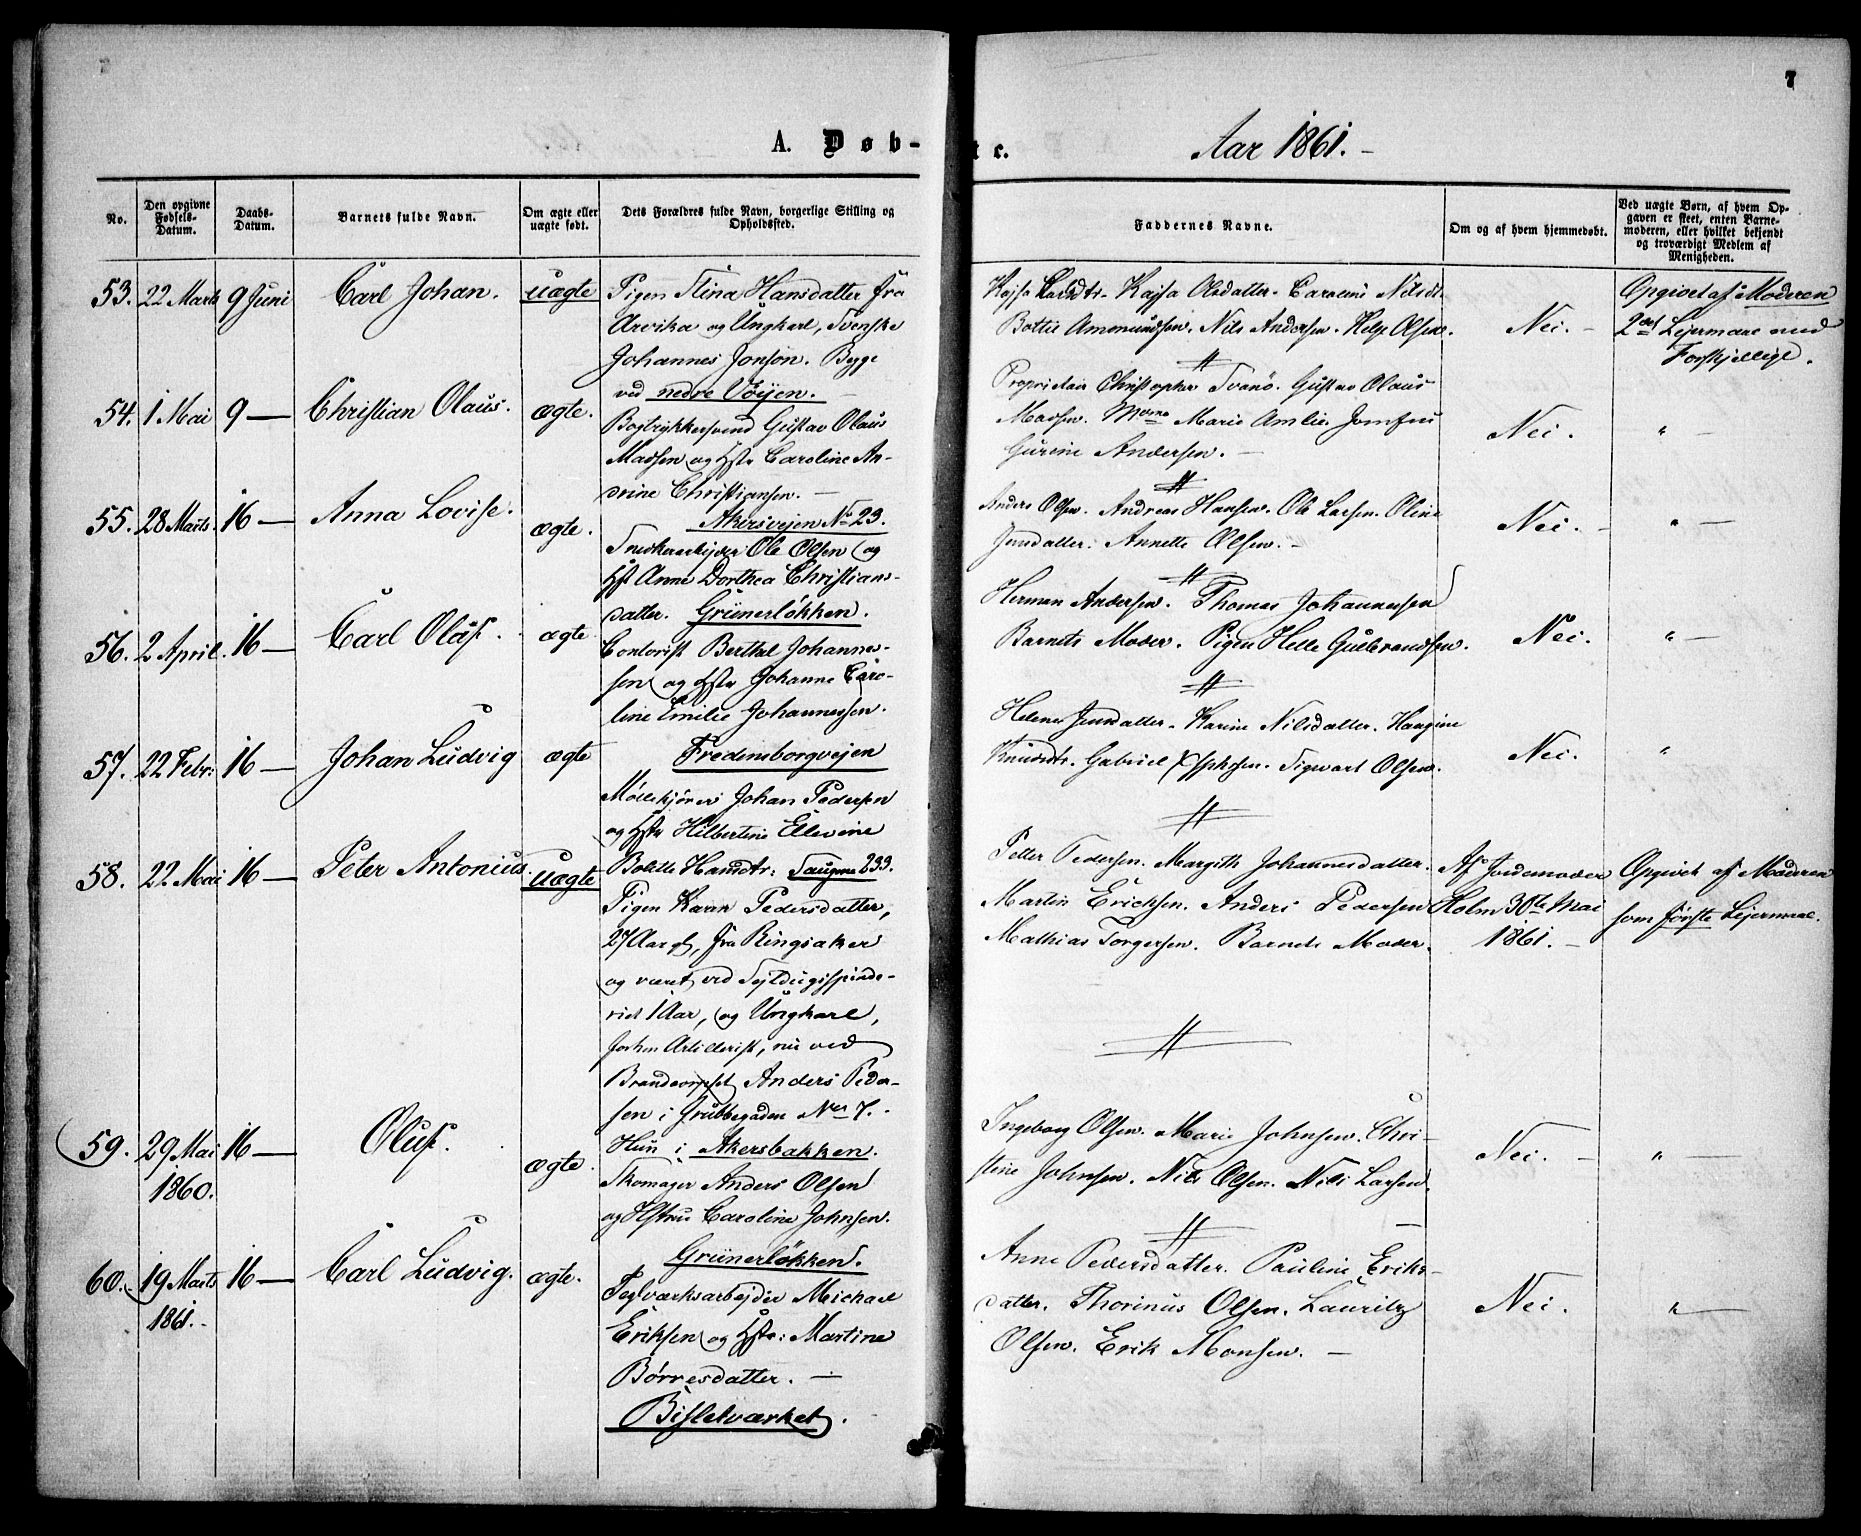 7
A. Døb-
te.
Aar 1861. -
No.
Den opgivne
Fødsels-
Datum.
Daabs-
Datum.
Barnets fulde Navn.
Om ægte eller
uægte født.
Dets Forældres fulde Navn, borgerlige Stilling og
Opholdssted.
Faddernes Navne.
Om og af hvem hjemmedøbt.
Ved uægte Børn, af hvem Op-
gaven er skeet, enten Barne-
moderen, eller hvilket bekjendt
og troværdigt Medlem af
Menigheden.
53. 22 Marts 9 Juni Carl Johan. uægte
Pigen Stina Hansdatter fra
Arvika og Ungkarl, Svenske
Johannes Jonson. Begge
ved nedre Vöyen. -
Kajsa - Kajsa Olsdatter - Caroline Nilsdt.
Ammundsen. Nils Andersen. Olsen.
Nei. -
Opgivet af Moderen
2det Lejermaal med
Forskjellige.
54. 1 Mai 9 - Christian Olaus. ægte.
Bogtrykkersvend Gustav Olaus
Madsen og Hstr Caroline An-
drine Christiansen. -
Akersvejen No 23.
Proprietair Christopher Svanö. Gustav Olaus
Madsen. Marie Amlie. Jomfru
Gurine Andersen. -
Nei. " -
55. 28 Marts. 16 - Anna Lovise. ægte.
Snedkerarbejder Ole Olsen og
Hst Anne Dorthea Christians-
datter. Grünerløkken.
Anders Olsen. Andreas Hansen. Ole Larsen. Oline
Jensdatter. Annette Olsen. -
Nei. - " -
56. 2 April. 16 - Carl Olaf. ægte
Contorist Berthel Johannes-
sen og Hstr Johanne Caro-
line Emilie Johannessen.
Fredensborgvejen
Herman Andersen. Thomas Johannesen
Barnets Moder. Pigen Helle Gulbrandsen.
Nei. " -
57. 22 Febr: 16 - Johan Ludvig ægte
Møllekjører Johan Pedersen
og Hstr Hilbertine Ellevine
Bolette Hansdtr: Saugene 233.
Helene Jensdatter - Karine Nilsdatter. Hangine
Knudsdtr. Gabriel . Sigwart Olsen.
Nei. "
58. 22 Mai 16 - Peter Antonius. uægte
Pigen Karen Pedersdatter,
27 Aar gl, fra Ringsaker
og været ved Sejldugsspinde-
riet 1 Aar, og Ungkarl,
forhen Artillerist, nu ved
Brandcorpset Anders Peder-
sen i Grubbegaden No 7. -
Hun i Akersbakken.
Petter Pedersen. Margith Johannesdatter.
Martin Ericksen. Anders Pedersen
Mathias Torgersen. Barnets Moder.
Af Jordemoder
Holm 30te Mai
1861. -
Opgivet af Moderen
som første Lejermaal.
59. 29 Mai 16 - Oluf. ægte.
1860.
Skomager Anders Olsen
og Hstru Caroline Johnsen.
Grünerløkken.
Ingeborg Olsen. Marie Johnsen. Chri-
stine Johnsen. Nils Olsen. Nils Larsen.
Nei. - " -
60. 19 Marts 16 - Carl Ludvig. ægte.
1861. -
Teglværksarbejder Michael
Eriksen og Hstr: Martine
Børresdatter. -
Bisletværket.
Anne Pedersdatter. Pauline Eriks-
datter. Thorinus Olsen. Lauritz
Olsen. Erik Monsen. -
Nei. " -